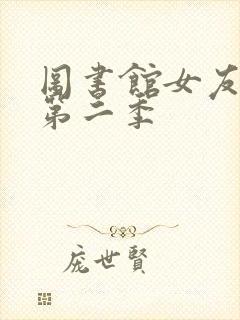 圖書館女友
第二季
龐世賢